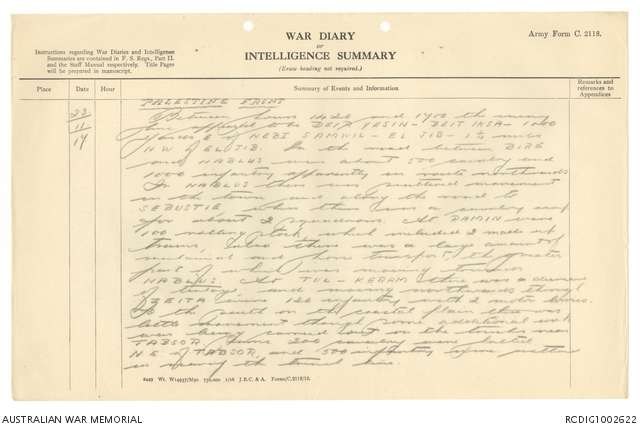 WAR DIARY
OR
INTELLIGENCE SUMMARY
(Erase heading not required.)
Army Form C. 2118.
Instructions regarding War Diaries and Intelligence
Summaries are contained in F. S. Regs., Part II.
and the Staff Manual respectively. Title Pages
will be prepared in manuscript.
Place
Date
Hour
Summary of Events and Information
Remarks and
references to
Appendices
22
11
17
PALESTINE FRONT
Between hours 1420 and 1700 the enemy
line appeared to be BEIT YESIN - BEIT IKSA - 1000
yards E of NEBI SAMWIL - EL JIB - 1½ miles
NW of EL JIB. On the road between BIRE
and NABLUS were about 500 cavalry and
1000 infantry apparently en route northwards
In NABLUS there was scattered movement
in the town and along the road to
SEBUSTIE when there was a cavalry camp
for about 2 squadrons. At DAMIN were
100 rolling stock, which included 2 made up
trains, also there was a large amount of
mechanical and horse transport the greater
part of which was moving towards
NABLUS. At TUL-KERAM there was a
and moving northwards through
ZEITA were 120 infantry with 2 motor lorries.
To the south on the coastal plain there was
little movement though some additional work
was being carried out on the trenches near
TABSOR. Some 200 cavalry were halted
N.E. of TABSOR, and 500 infantry were
in the line.
AUSTRALIAN WAR MEMORIAL
RCDIG1002622